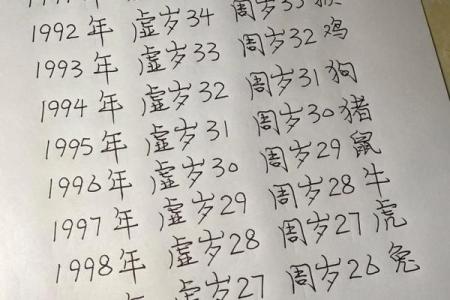 1992年 虚岁34 周岁33 猴
1993年 虚岁33 周岁32 鸡
1994年 虚岁32 周岁31 狗
1995年 虚岁31 周岁30 猪
1996年 虚岁30 周岁29 鼠
1997年 虚岁29 周岁28 牛
1998年 虚岁28 周岁27 虎
年 虚岁27 周岁26 兔